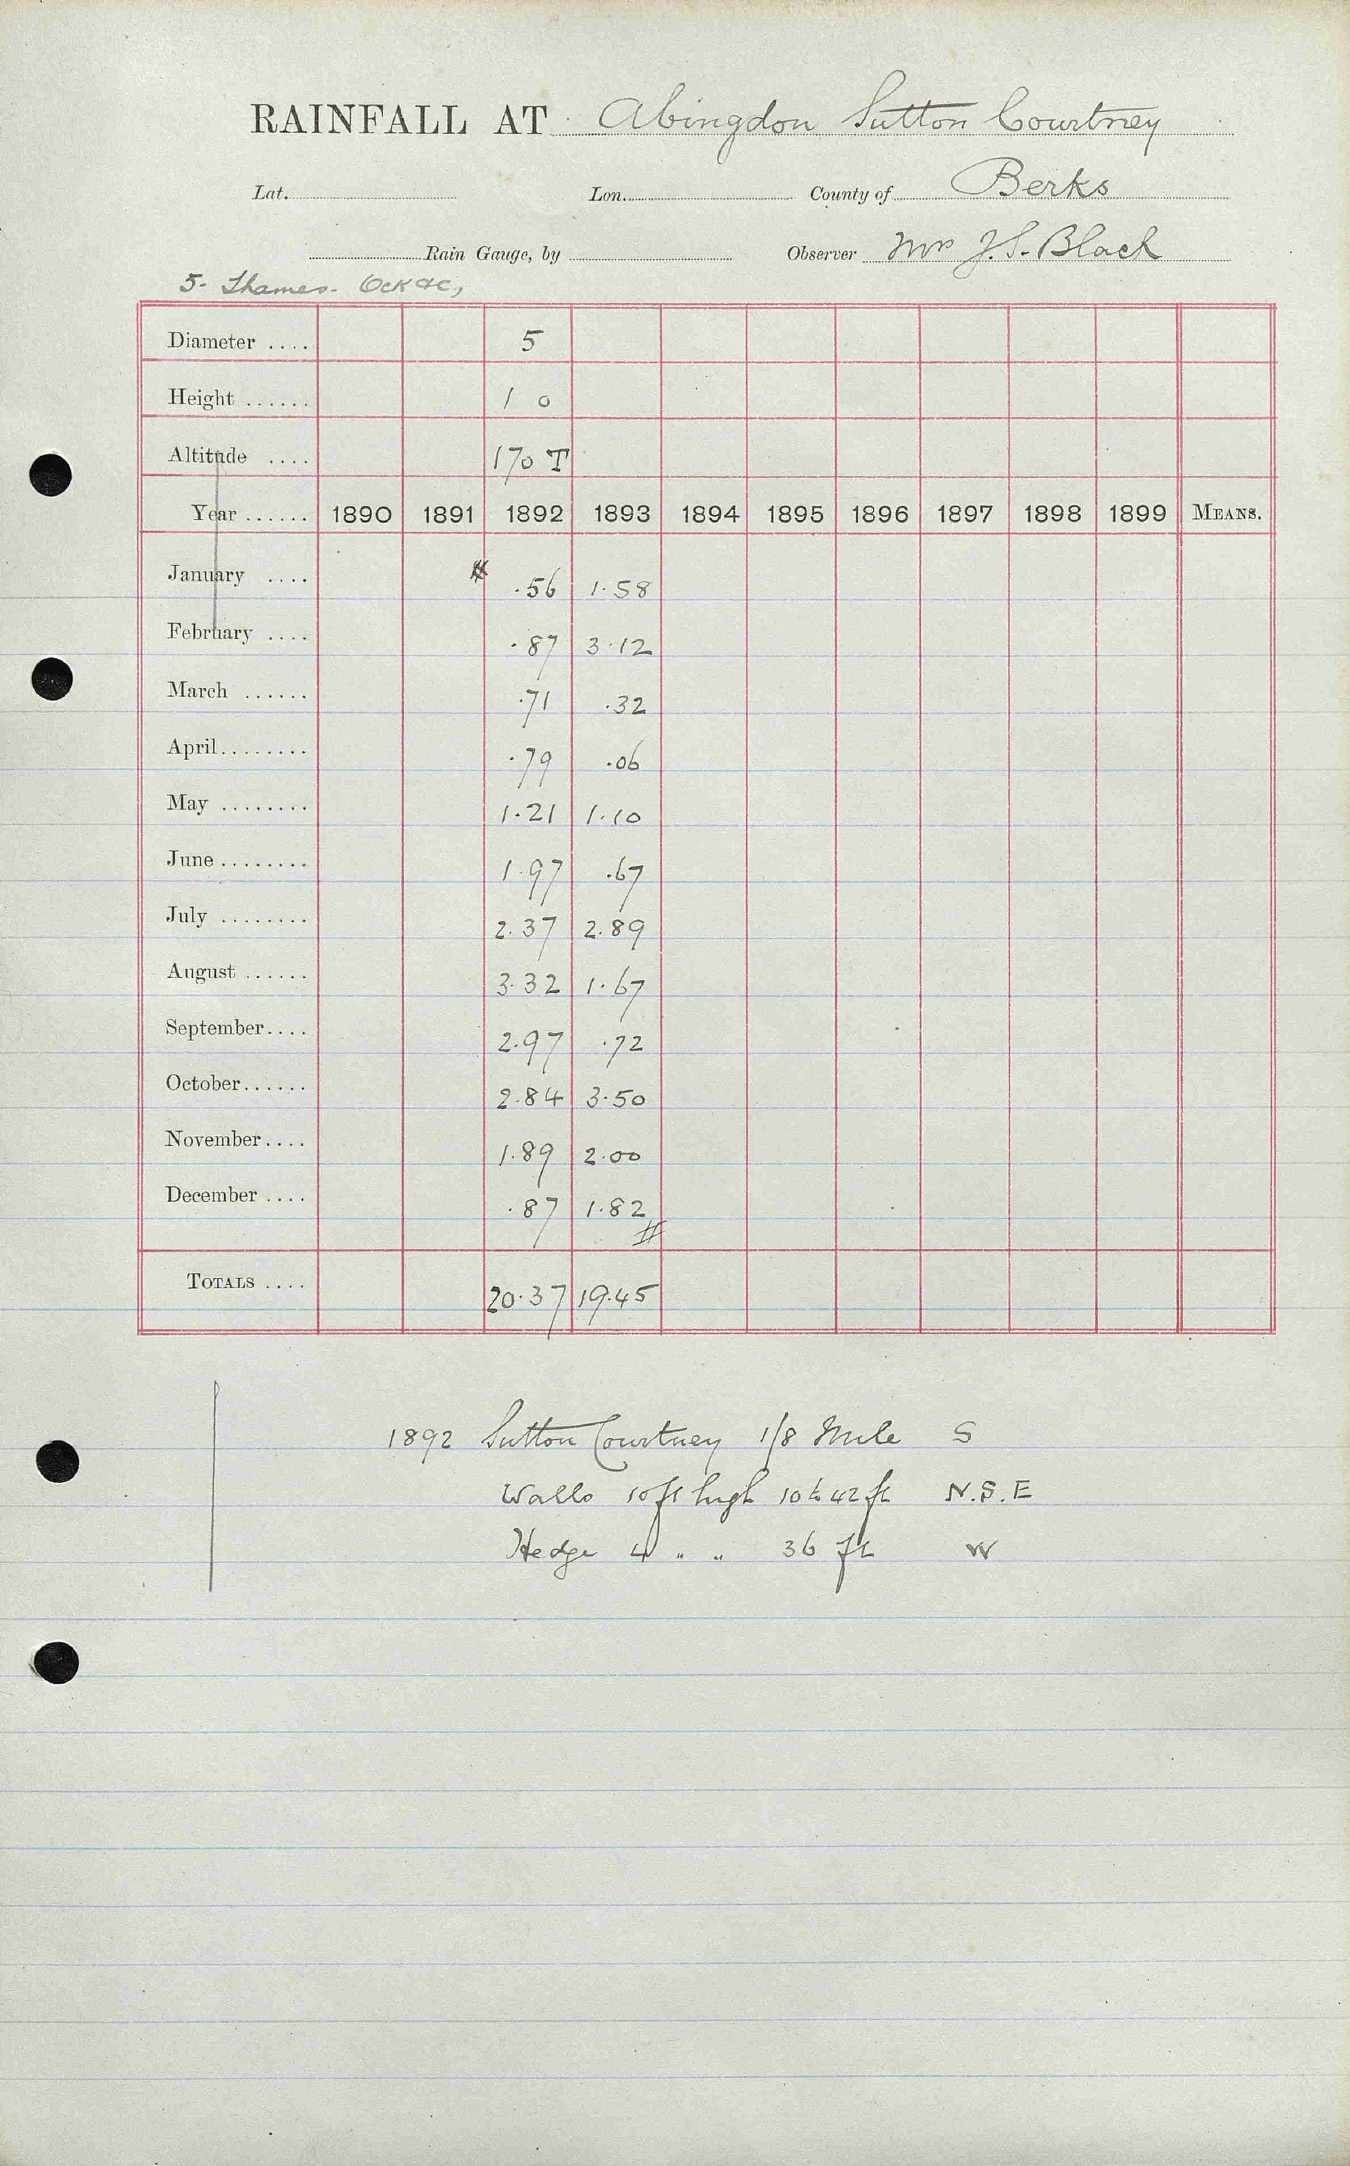 RAINFALL AT Abingdon Sutton Courtney
Lat. Lon. County of Berks
Rain Gauge, by Observer Mrs J.S. Black
5- Thames- Ock &c,
Diameter .... 5
Height ...... 1 0
Altitude .... 170 T
Year ...... 1890 1891 1892 1893 1894 1895 1896 1897 1898 1899 MEANS.
January .... .56 1.58
February .... .87 3.12
March ...... .71 .32
April........ .79 .06
May ........ 1.21 1.10
June ........ 1.97 .67
July ........ 2.37 2.89
August ...... 3.32 1.67
September.... 2.97 .72
October...... 2.84 3.50
November.... 1.89 2.00
December .... .87 1.82
TOTALS .... 20.37 19.45
1892 Sutton Courtney 1/8 Mile S
Walls 10 ft high 10 to 42 ft N.S.E
Hedge 4 " " 36 ft W